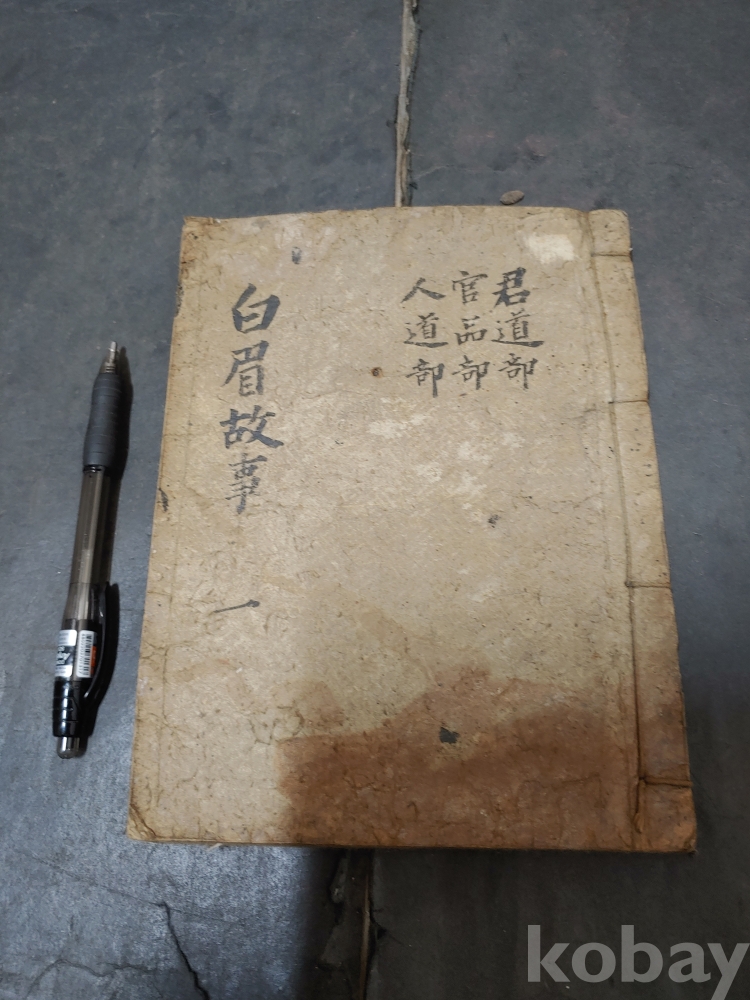 君道部
官品部
人道部
白眉故事
一
kobay